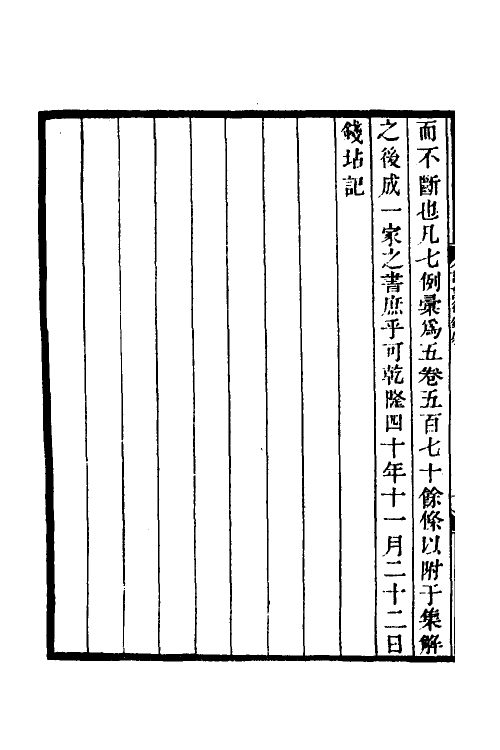 而不斷也凡七例彙爲五卷五百七十餘條以附于集解
之後成一家之書庶乎可乾隆四十年十一月二十二日
錢坫記